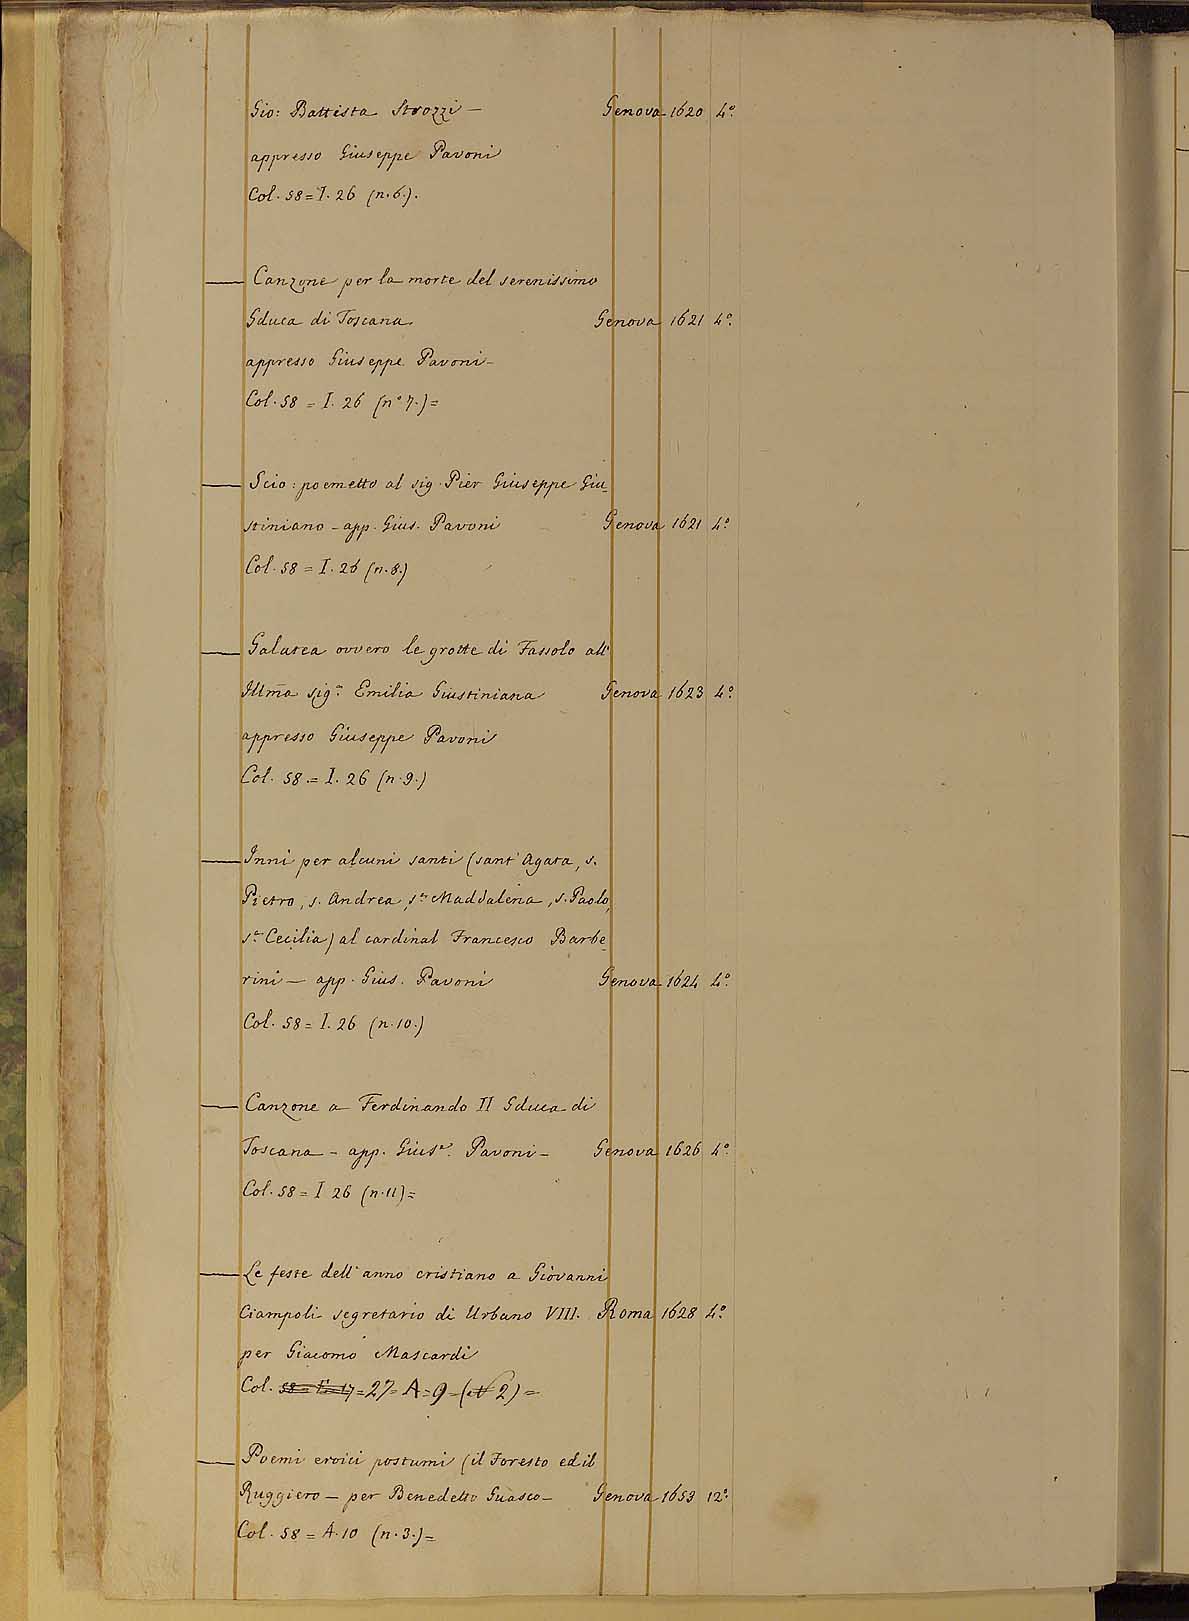 Gio: Battista Strozzi — Genova 1620 4.º
appresso Giuseppe Pavoni
Col. 58 = I. 26 (n. 6.).
— Canzone per la morte del serenissimo
Gduca di Toscana Genova 1621 4.º
appresso Giuseppe Pavoni –
Col. 58 = I. 26 (nº 7.) =
— Scio: poemetto al sig. Pier Giuseppe Giu=
stiniano – app. Gius. Pavoni Genova 1621 4.º
Col. 58 = I. 26 (n. 8.)
— Galatea ovvero le grotte di Fassolo all'
Illm̃a sig.ª Emilia Giustiniana Genova 1623 4.º
appresso Giuseppe Pavoni
Col. 58. = I. 26 (n. 9.)
— Inni per alcuni santi (sant' Agata, s.
Pietro, s. Andrea, s.ta Maddalena, s. Paolo,
s.ta Cecilia) al cardinal Francesco Barbe=
rini — app. Gius. Pavoni Genova 1624 4.º
Col. 58 = I. 26 (n. 10.)
— Canzone a Ferdinando II Gduca di
Toscana – app. Gius.e Pavoni – Genova 1626 4.º
Col. 58 = I 26 (n. 11) =
— Le feste dell' anno cristiano a Giovanni
Ciampoli segretario di Urbano VIII. Roma 1628 4.º
per Giacomo Mascardi
Col. = 27 = A = 9 – ( 2) =
— Poemi eroici postumi (il Foresto ed il
Ruggiero — per Benedetto Guasco – Genova 1653 12.º
Col. 58 = A. 10 (n. 3.) =